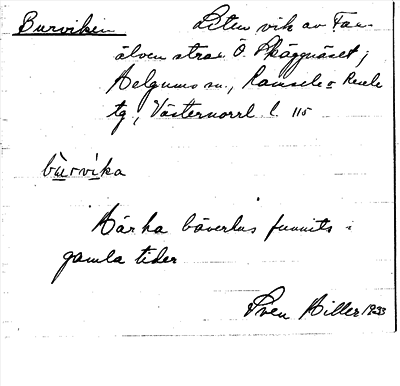 Burviken Liten vik av Fax-
älven strax Ö. Skäggnäset;
Helgums sn., Ramsele o Resele
tg, Västernorrl. l. 115
bùrvìka
Här ha bäverbur funnits i
gamla tider
Sven Hiller 1933